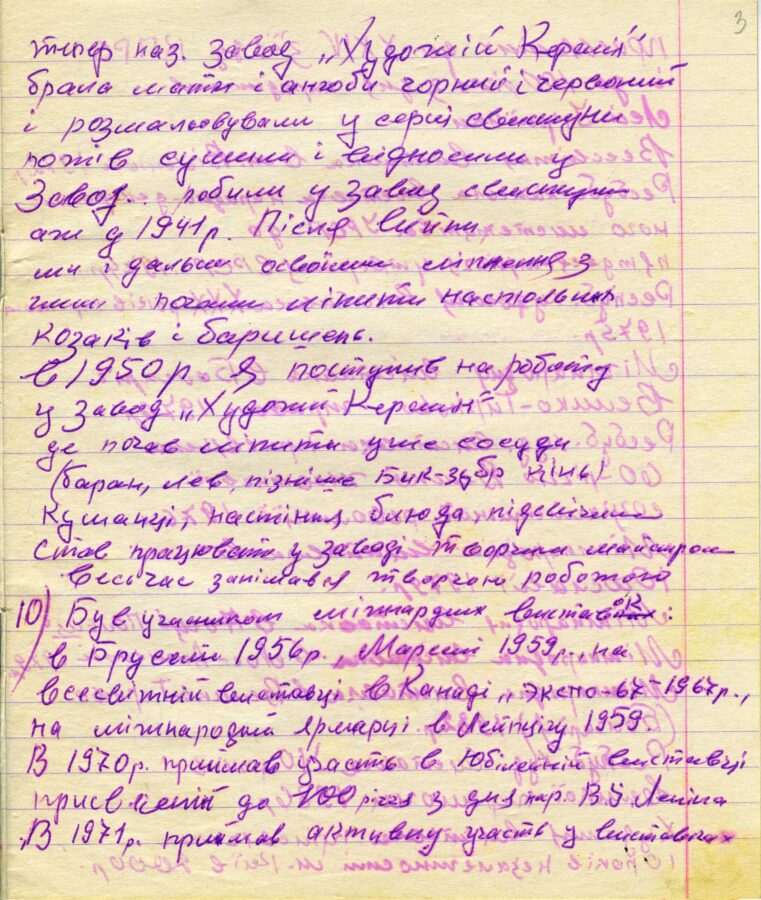 3
тепер наз. завод „Художній Керамік"
брала мати і ангоби чорний і червоний
і розмальовували у серії свистуни
потів сушили і відносили у
Завод. робили у завод свистуни
аж д 1941р. Після війни
ми і дальше освоїли ліплення з
глини почали ліпити настольних
козаків і баришень.
в 1950р. Я поступив на роботу
у завод „Художній Керамік"
де почав ліпити уже сосуди
(баран, лев, пізніше Бик-зубр кінь)
Куманці, настінні блюда, підсвічники
Став працювати у заводі творчим майстром
весь час занімався творчою роботою
10) Був учасником міжнардних виставок:
в Бруселі 1956р, Марселі 1959р., на
всесвітній виставці в Канаді „Экспо-67" 1967р.,
на міжнародній Ярмарці в Лейпцігу 1959.
В 1970р. приймав участь в Юбілейній виставці
присвяченій до 100 річчя з дня нар. В.І Леніна
В 1971р. приймав активну участь у виставках